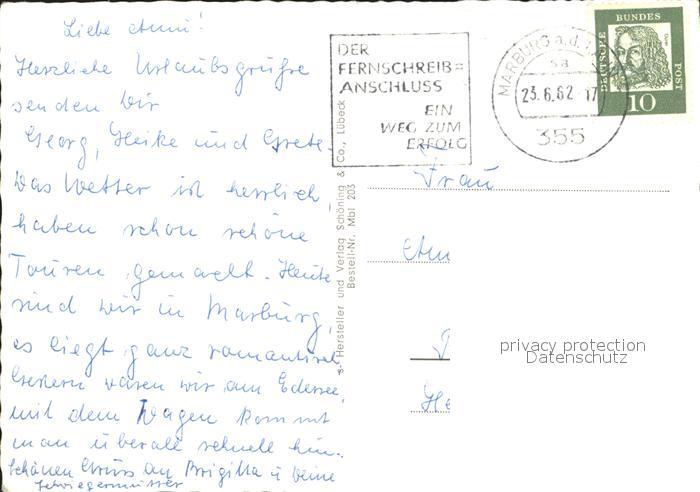 Liebe Anni!
Herzliche Urlaubsgrüsse
senden Dir
Georg, Heike und Grete.
Das Wetter ist herrlich,
haben schon schöne
Touren gemacht. Heute
sind wir in Marburg,
es liegt ganz romantisch.
Gestern waren wir am Edersee,
mit dem Wagen kommt
man überall schnell hin.
Schönen Gruss an Brigitta u Deine
Schwiegermutter
Hersteller und Verlag Schöning & Co., Lübeck
Bestell-Nr. Mbl 203
DER
FERNSCHREIB=
ANSCHLUSS
EIN
WEG ZUM
ERFOLG
MARBURG a.d.
sa
23.6.62.-17
355
DEUTSCHE BUNDESPOST
10
Frau
privacy protection
Datenschutz